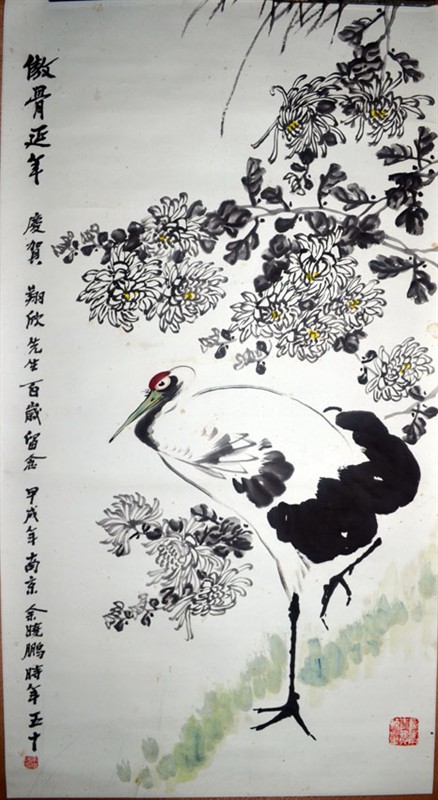 傲骨延年 慶賀 翔欣先生百歲留念 甲戌年南京余曉鵬時年五十